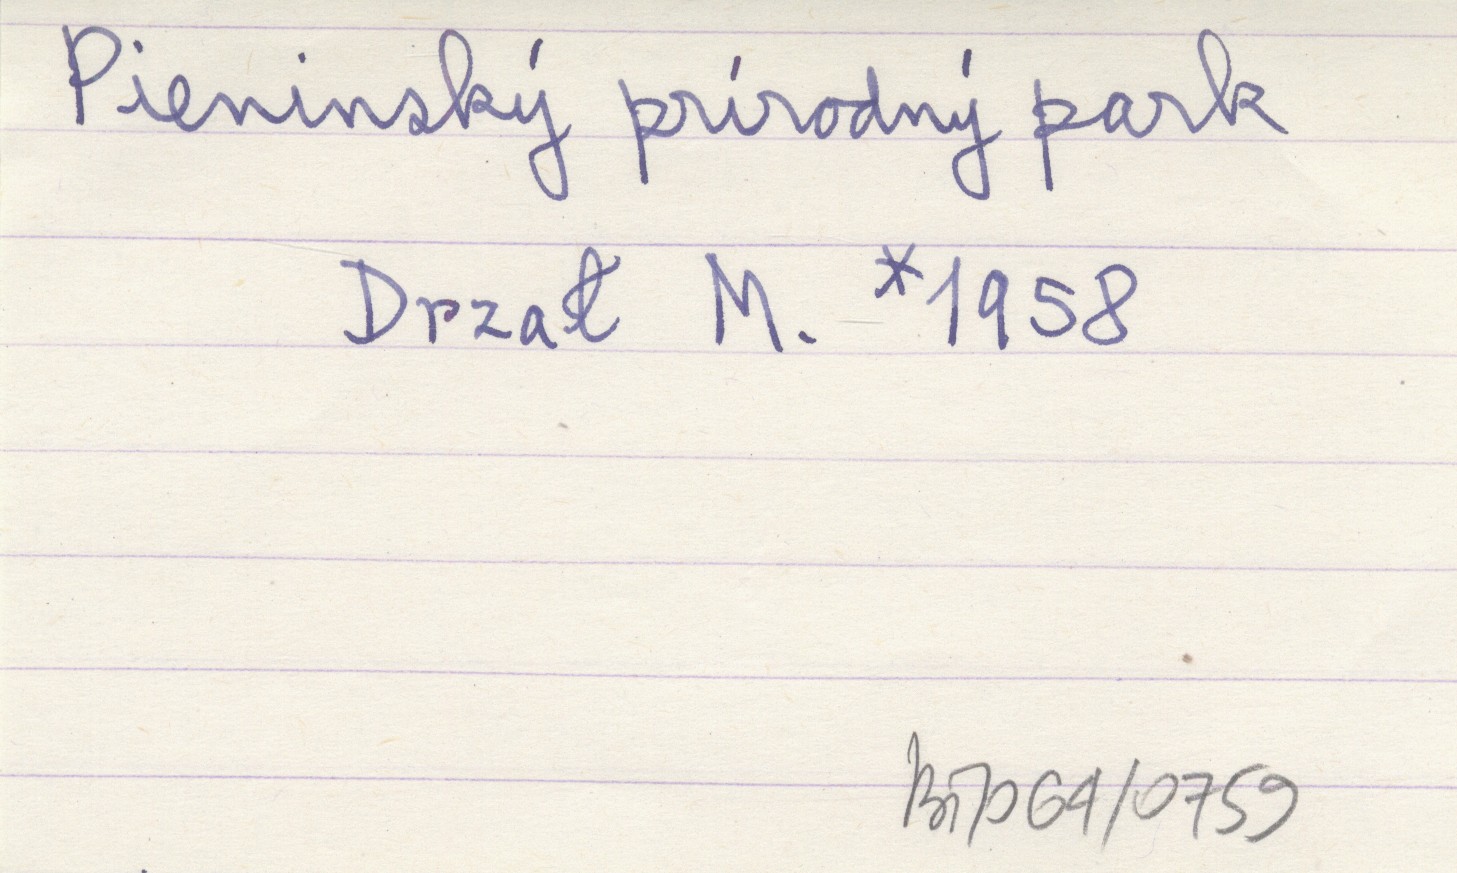 Pieninský prírodný park
Drzał M. *1958
BiP64/0759